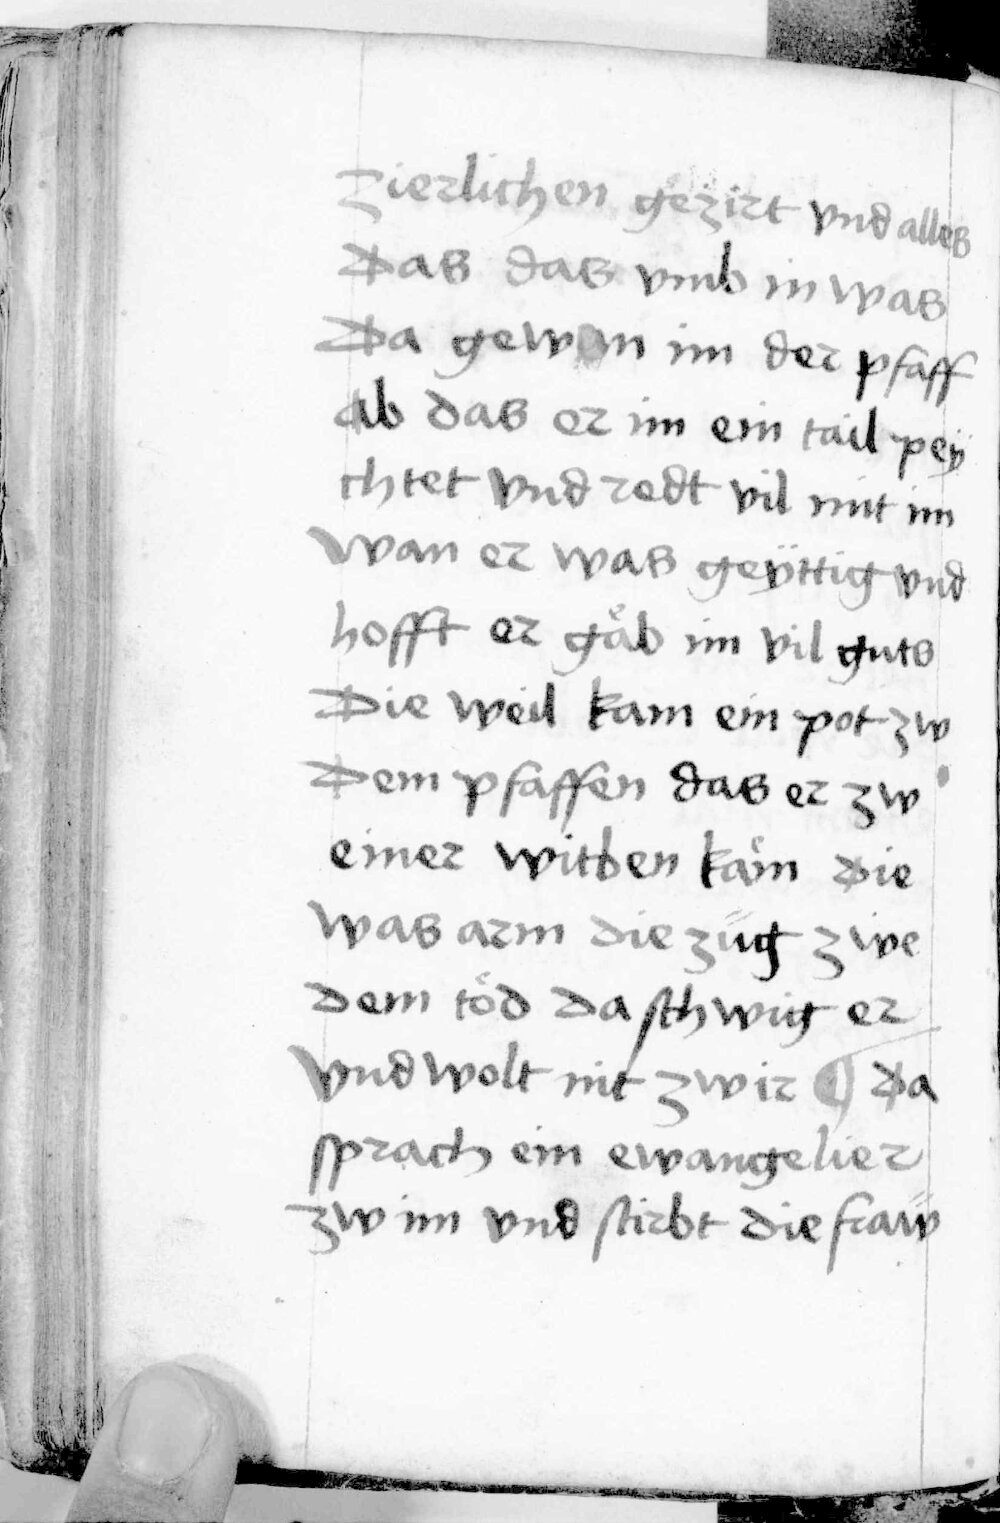 zierlichen gezirt vnd alles
Das das vmb in was
Da gewan im der pfaff
ab das er im ein tail peÿ
chtet vnd redt vil mit im
wan er was geÿttig vnd
hofft er gäb im vil guts
Die weil kam ein pot zw
Dem pfaffen das er zw
einer witben käm Die
was arm die züg zwe
dem töd da schwig er
vnd wolt nit zw ir ¶ Da
sprach ein ewangelier
zw im vnd stirbt die fraẅ